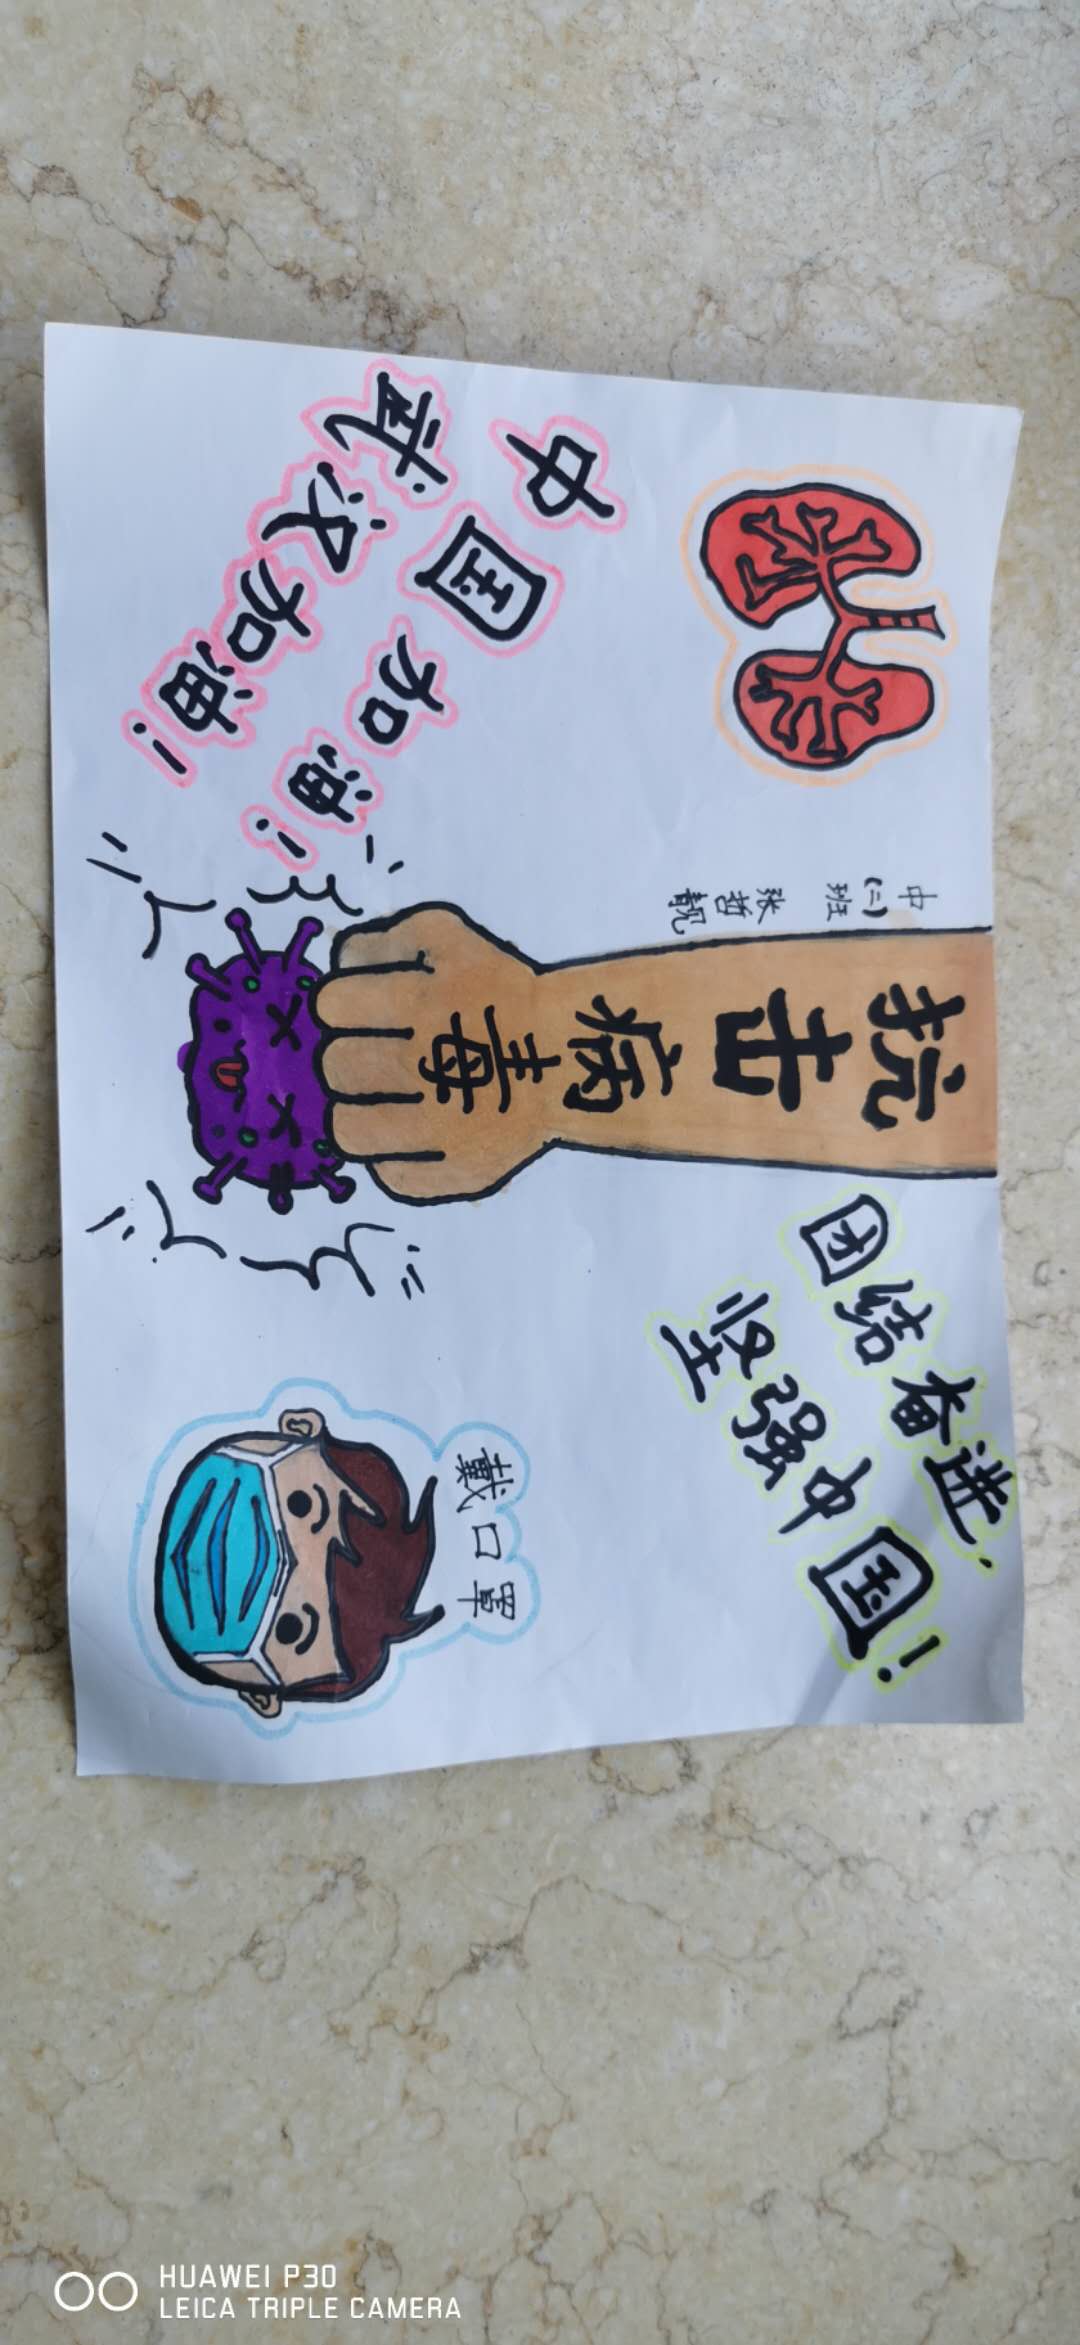 中国加油！
武汉加油！
中(二)班
张哲靓
抗击病毒
团结奋进，
坚强中国！
戴口罩
HUAWEI P30
LEICA TRIPLE CAMERA